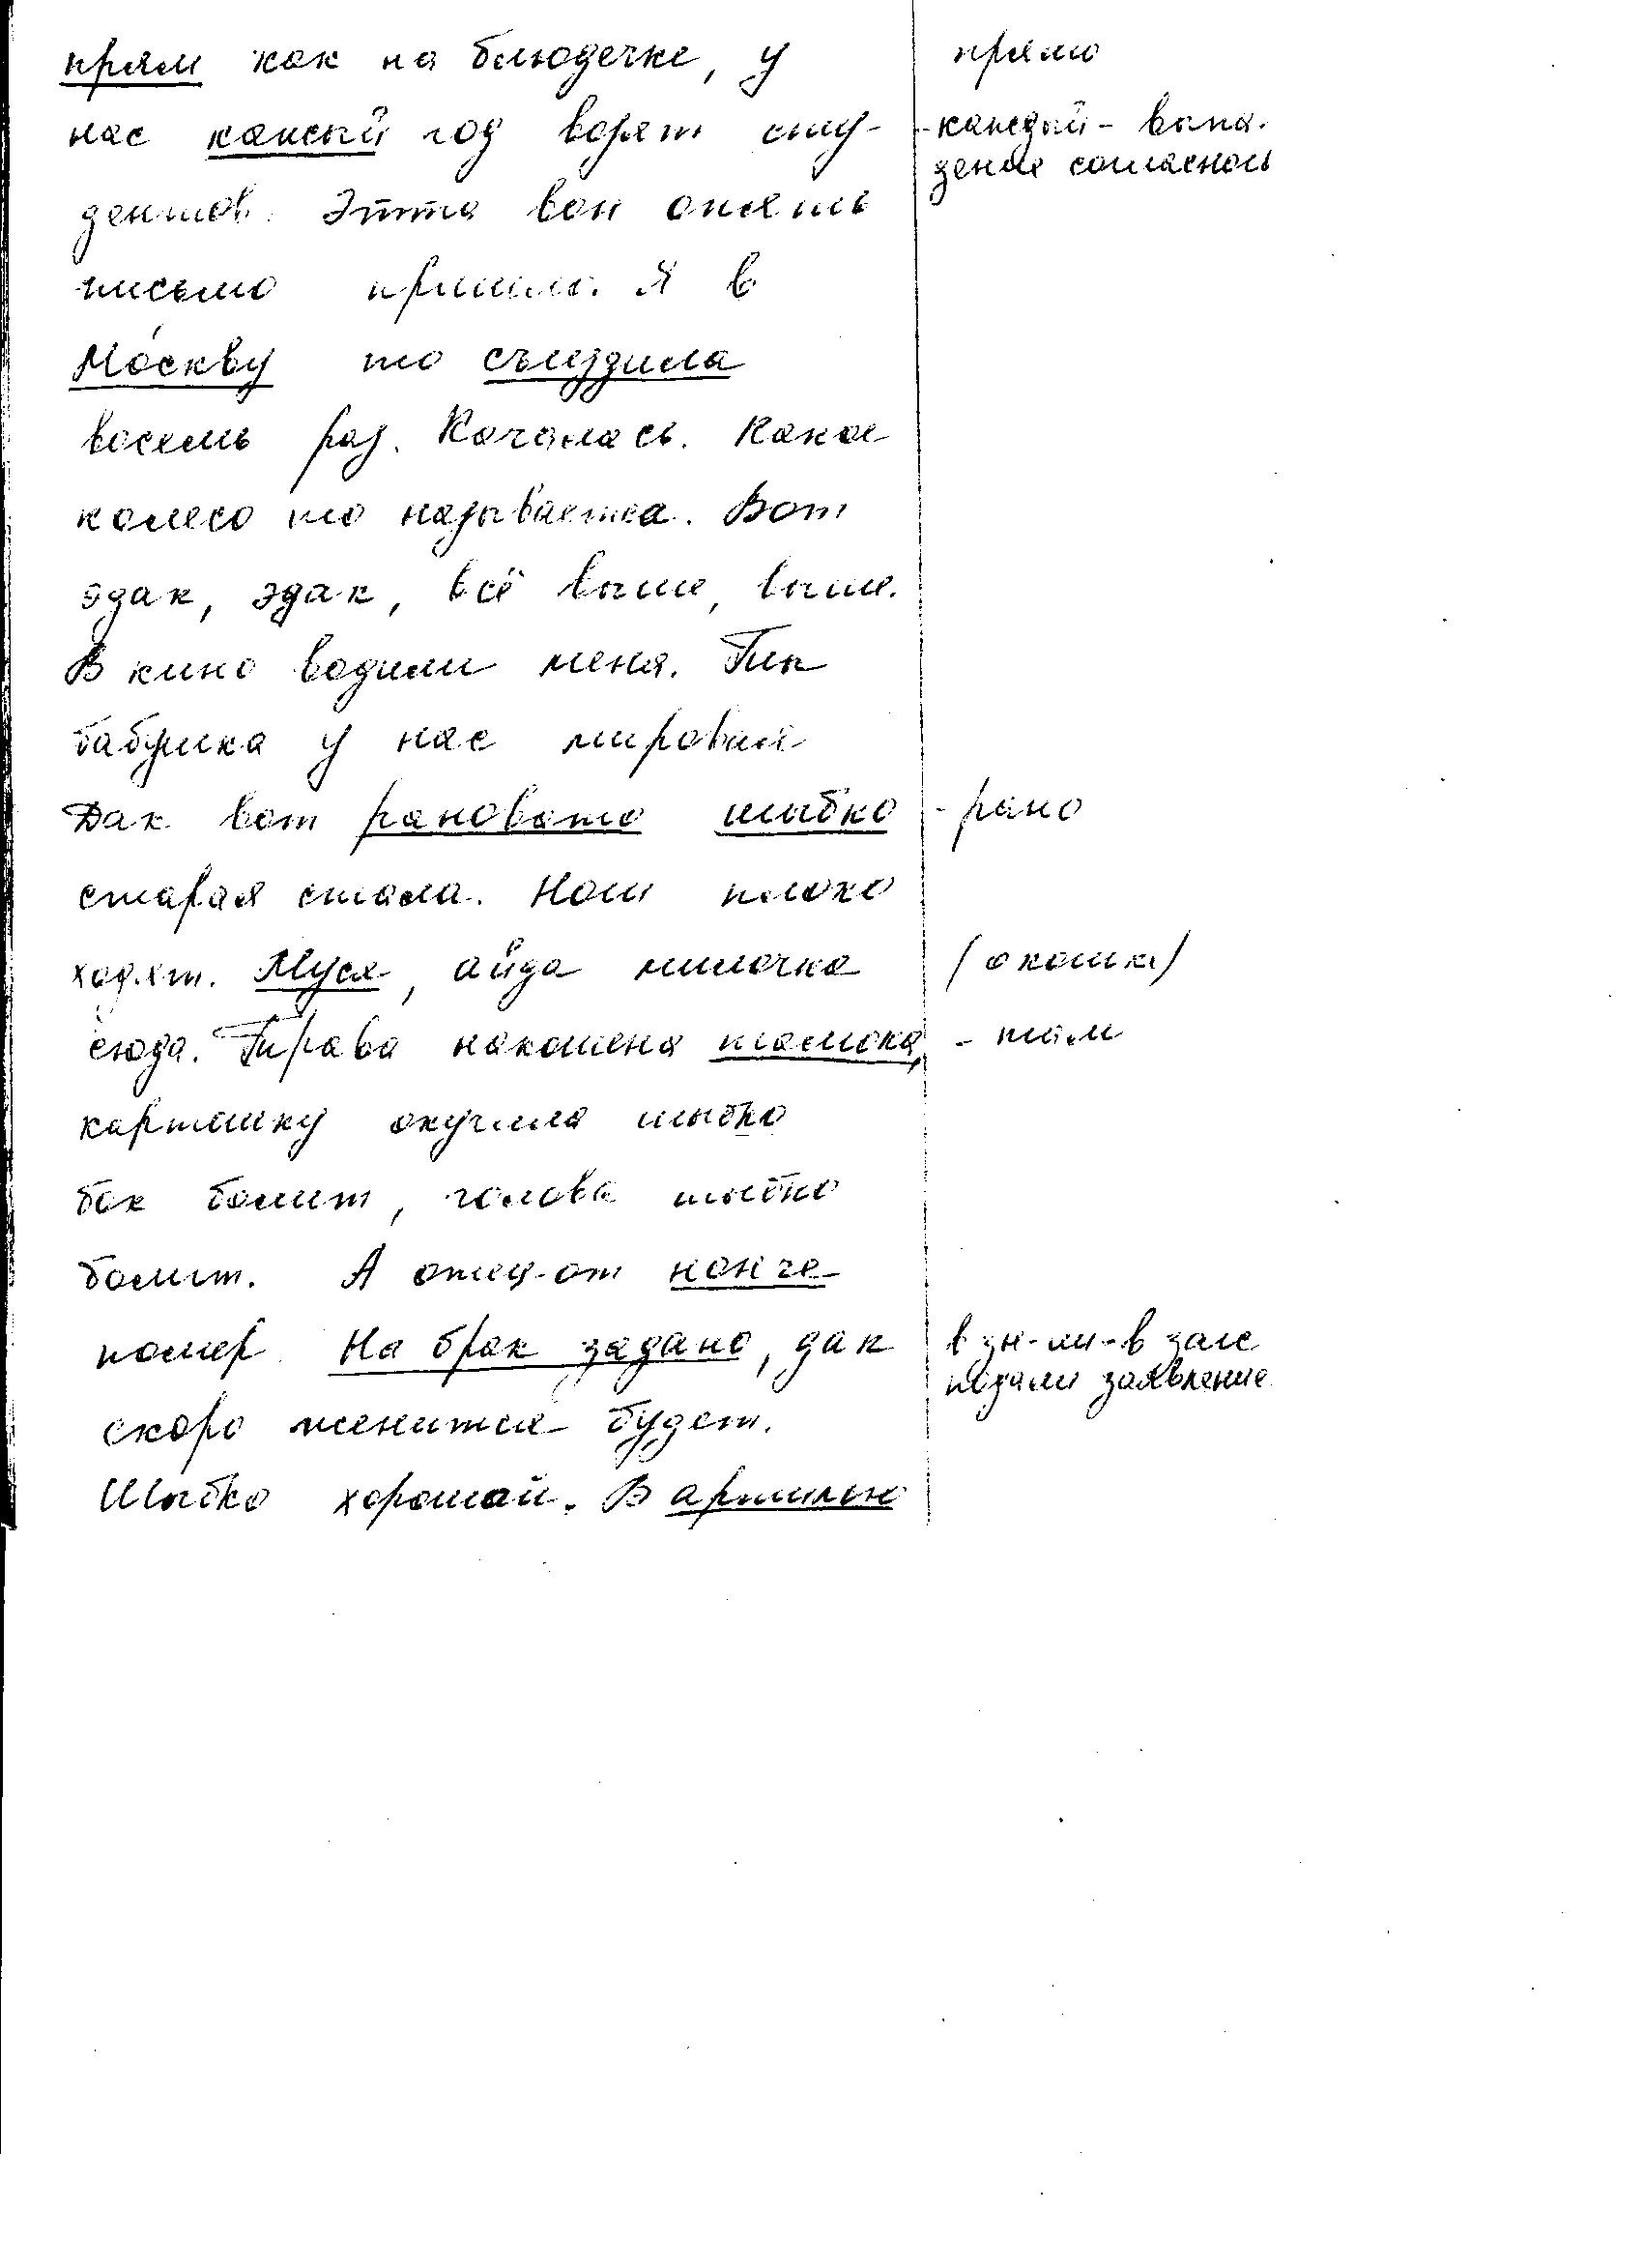 прям как на блюдечке, у
нас кажный год возят сту-
дентов. Этта вон опять
письмо пришло. Я в
Мо́скву то съездила
восемь раз. Качалась. Какое
колесо то называется. Вот
эдак, эдак, всё выше, выше.
В кино водили меня.
бабушка у нас мировая
Дак вот рановато шыбко
старая стала. плохо
ходят. Муся, айда милочка
сюда. Трава накошена тамока,
картошку окучила шыбко
бок болит, голова шыбко
болит. А отец-от нонче
помер. На брак задано, дак
скоро женится будет.
Шыбко хорошой. В
прямо
- каждый - выпа-
дение согласной
- рано
(о кошке)
- там
в зн-ии - в загс
подали заявление